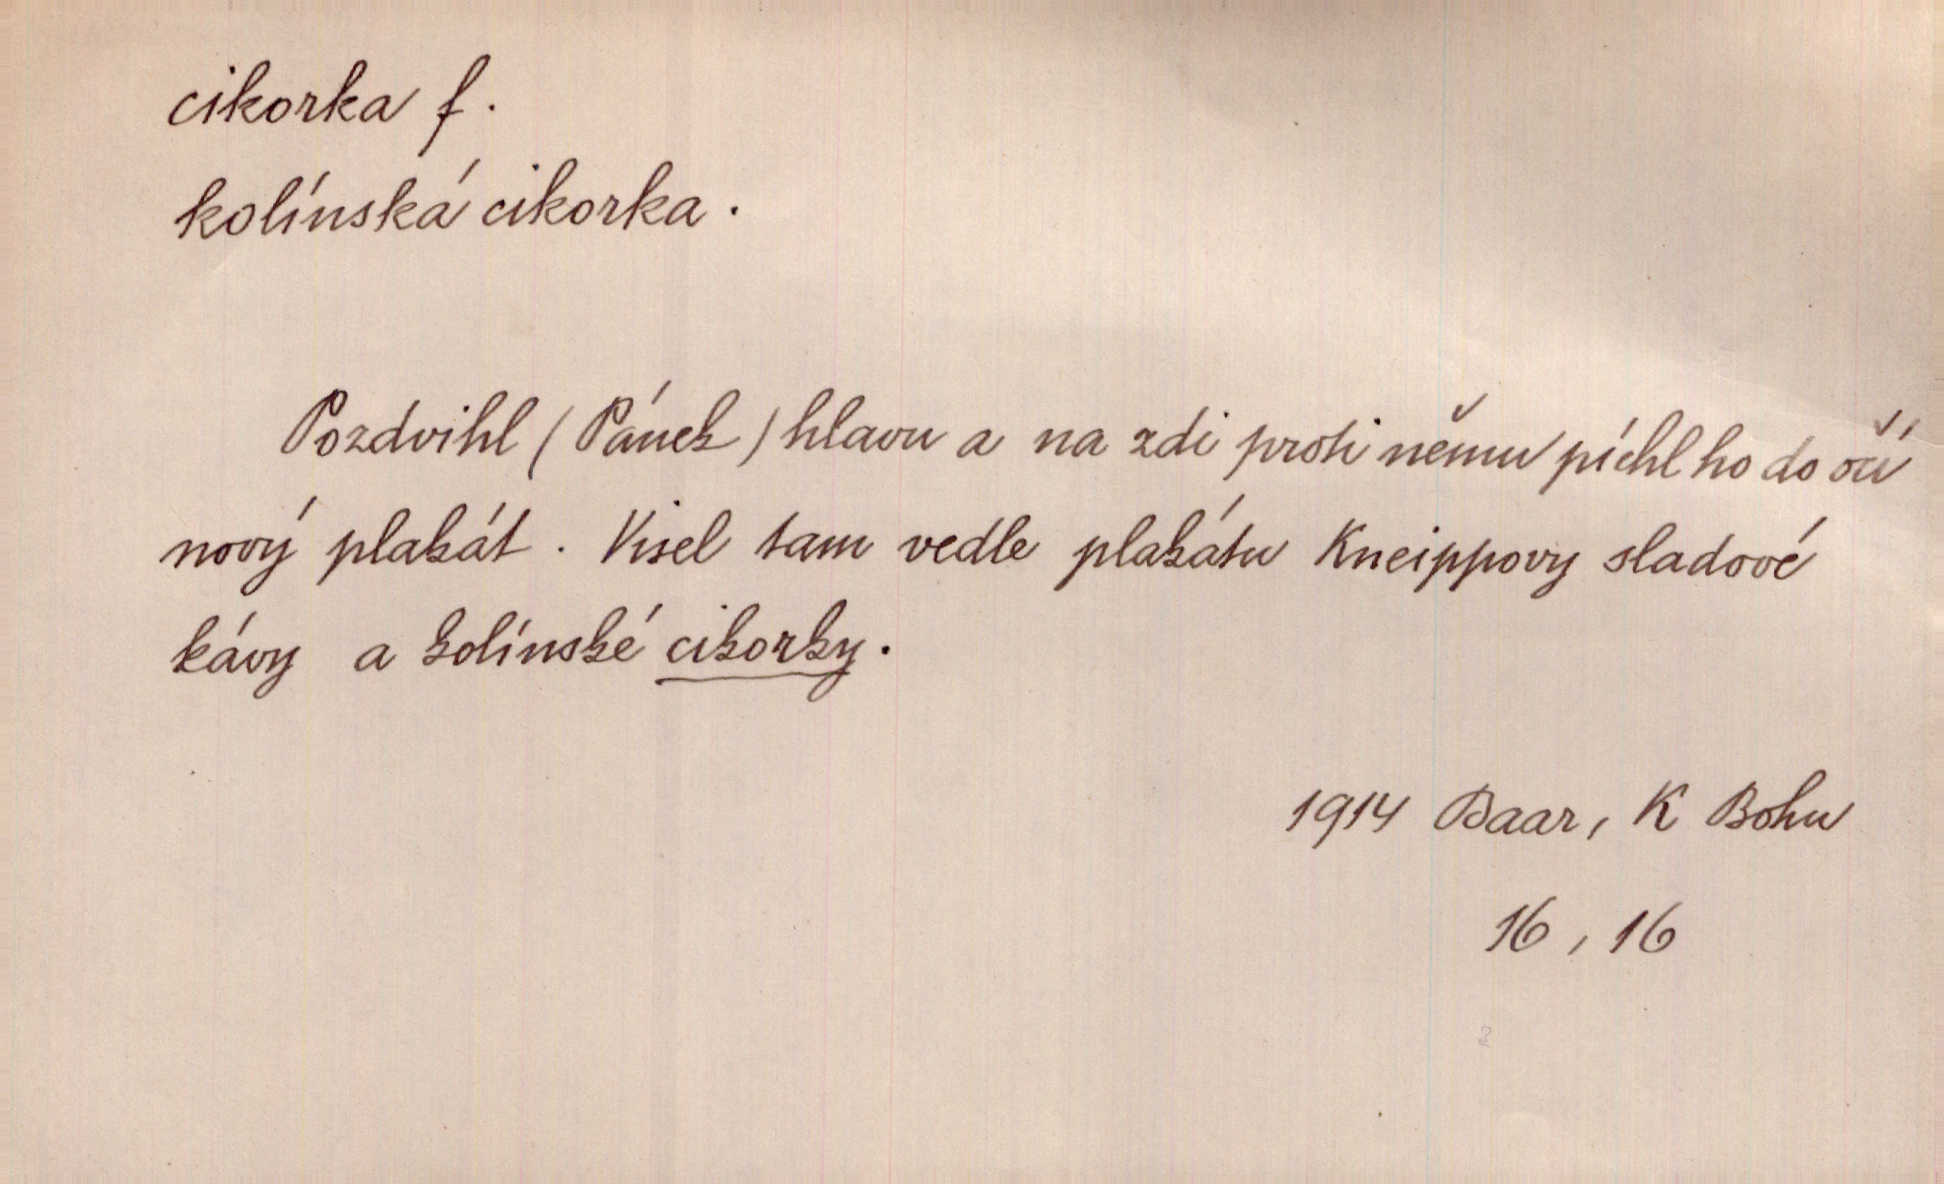 cikorka f.
kolínská cikorka.
Pozdvihl (Pánek) hlavu a na zdi proti němu píchl ho do očí
nový plakát. Visel tam vedle plakátu Kneippovy sladové
kávy a kolínské cikorky.
1914 Baar, K Bohu
16, 16